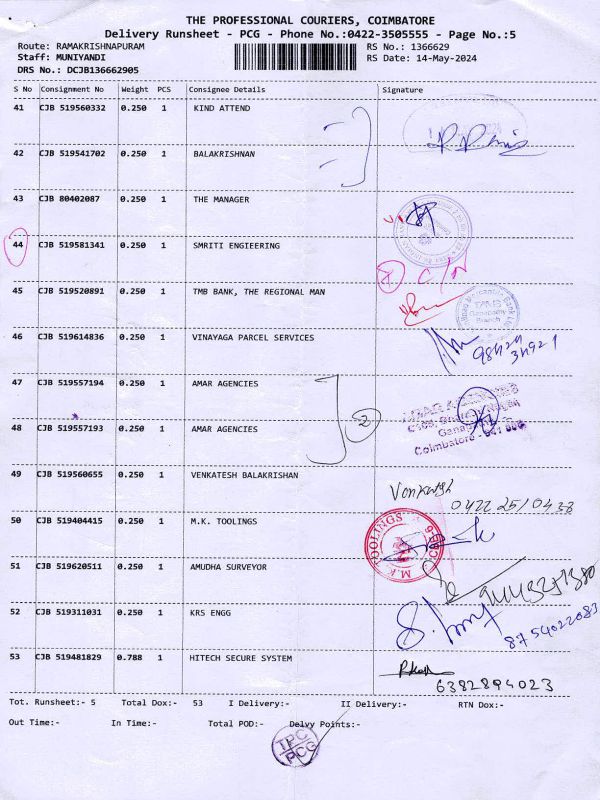 THE PROFESSIONAL COURIERS, COIMBATORE
Delivery Runsheet - PCG - Phone No.:0422-3505555 - Page No.:5
Route: RAMAKRISHNAPURAM RS No.: 1366629
Staff: MUNIYANDI RS Date: 14-May-2024
DRS No.: DCJB136662905
S No Consignment No Weight PCS Consignee Details Signature
41 CJB 519560332 0.250 1 KIND ATTEND
42 CJB 519541702 0.250 1 BALAKRISHNAN
43 CJB 80402087 0.250 1 THE MANAGER
44 CJB 519581341 0.250 1 SMRITI ENGIEERING
45 CJB 519520891 0.250 1 TMB BANK, THE REGIONAL MAN
TMB
Ganapathy
Branch
46 CJB 519614836 0.250 1 VINAYAGA PARCEL SERVICES
47 CJB 519557194 0.250 1 AMAR AGENCIES
2
48 CJB 519557193 0.250 1 AMAR AGENCIES
Coimbatore
49 CJB 519560655 0.250 1 VENKATESH BALAKRISHAN
Venkatesh
50 CJB 519404415 0.250 1 M.K. TOOLINGS
M.K. TOOLINGS CBE-6
51 CJB 519620511 0.250 1 AMUDHA SURVEYOR
52 CJB 519311031 0.250 1 KRS ENGG
8754022083
53 CJB 519481829 0.788 1 HITECH SECURE SYSTEM
6382894023
Tot. Runsheet:- 5 Total Dox:- 53 I Delivery:- II Delivery:- RTN Dox:-
Out Time:- In Time:- Total POD:- Delvy Points:-
TPC
PCG